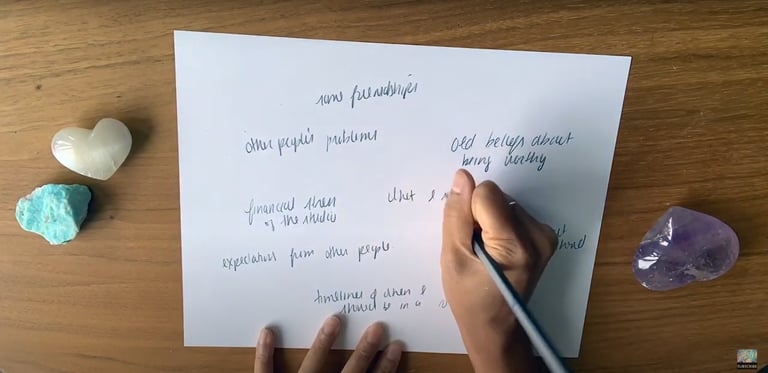 some friendships
other people's problems
old beliefs about
being worthy
financial stress
of the studio
what I
expectations from other people.
timelines of when I
should be in a
SUBSCRIBE